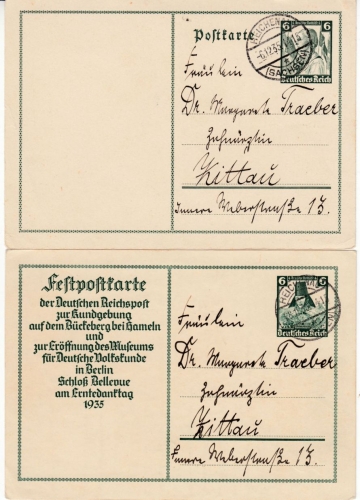 Postkarte
6 6
Deutsches Reich
(SACHSEN)
Fräulein
Dr. Margarete Traeber
Zahnärztin
Zittau
Innere Weberstraße 13.
Festpostkarte
der Deutschen Reichspost
zur Kundgebung
auf dem Bückeberg bei Hameln
und
zur Eröffnung des Museums
für Deutsche Volkskunde
in Berlin
Schloß Bellevue
am Erntedanktag
1935
6 6
Deutsches Reich
Fräulein
Dr. Margarete Traeber
Zahnärztin
Zittau
Innere Weberstraße 13.